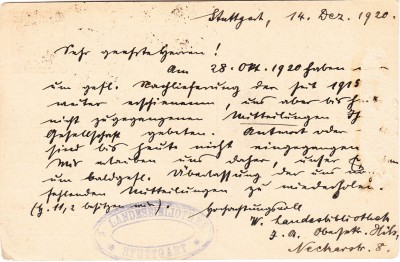 Stuttgart, 14. Dez. 1920.
Sehr geehrte Herren!
Am 28. Okt. 1920 haben
um gefl. Nachlieferung der seit 1915
weiter erschienenen, uns aber bisher
nicht zugegangenen Mitteilungen Ih
Gesellschaft gebeten. Antwort oder
sind bis heute nicht eingegangen
Wir erlauben uns daher, unser
um baldgefl. Überlassung der uns
fehlenden Mitteilungen zu wiederholen.
(J. 11,2 besitzen wir). Hochachtungsvoll
W. Landesbibliothek
J. A.
Neckarstr. 8.
LANDESBIBLIOTHEK
STUTTGART